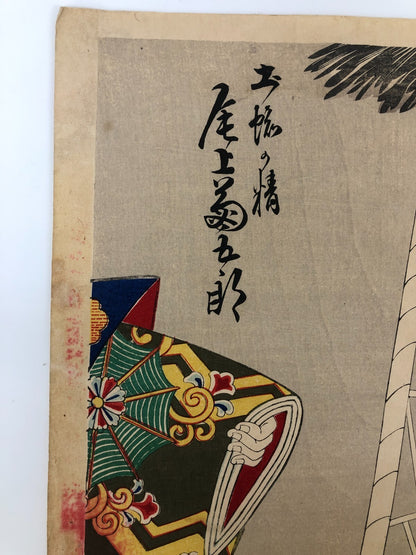 土蜘の精
尾上菊五郎